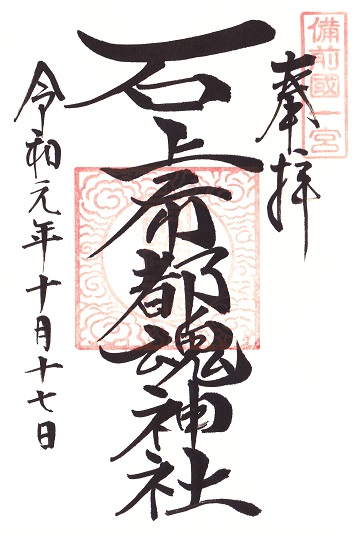 備前國一宮
奉拝
石上布都魂神社
令和元年十月十七日